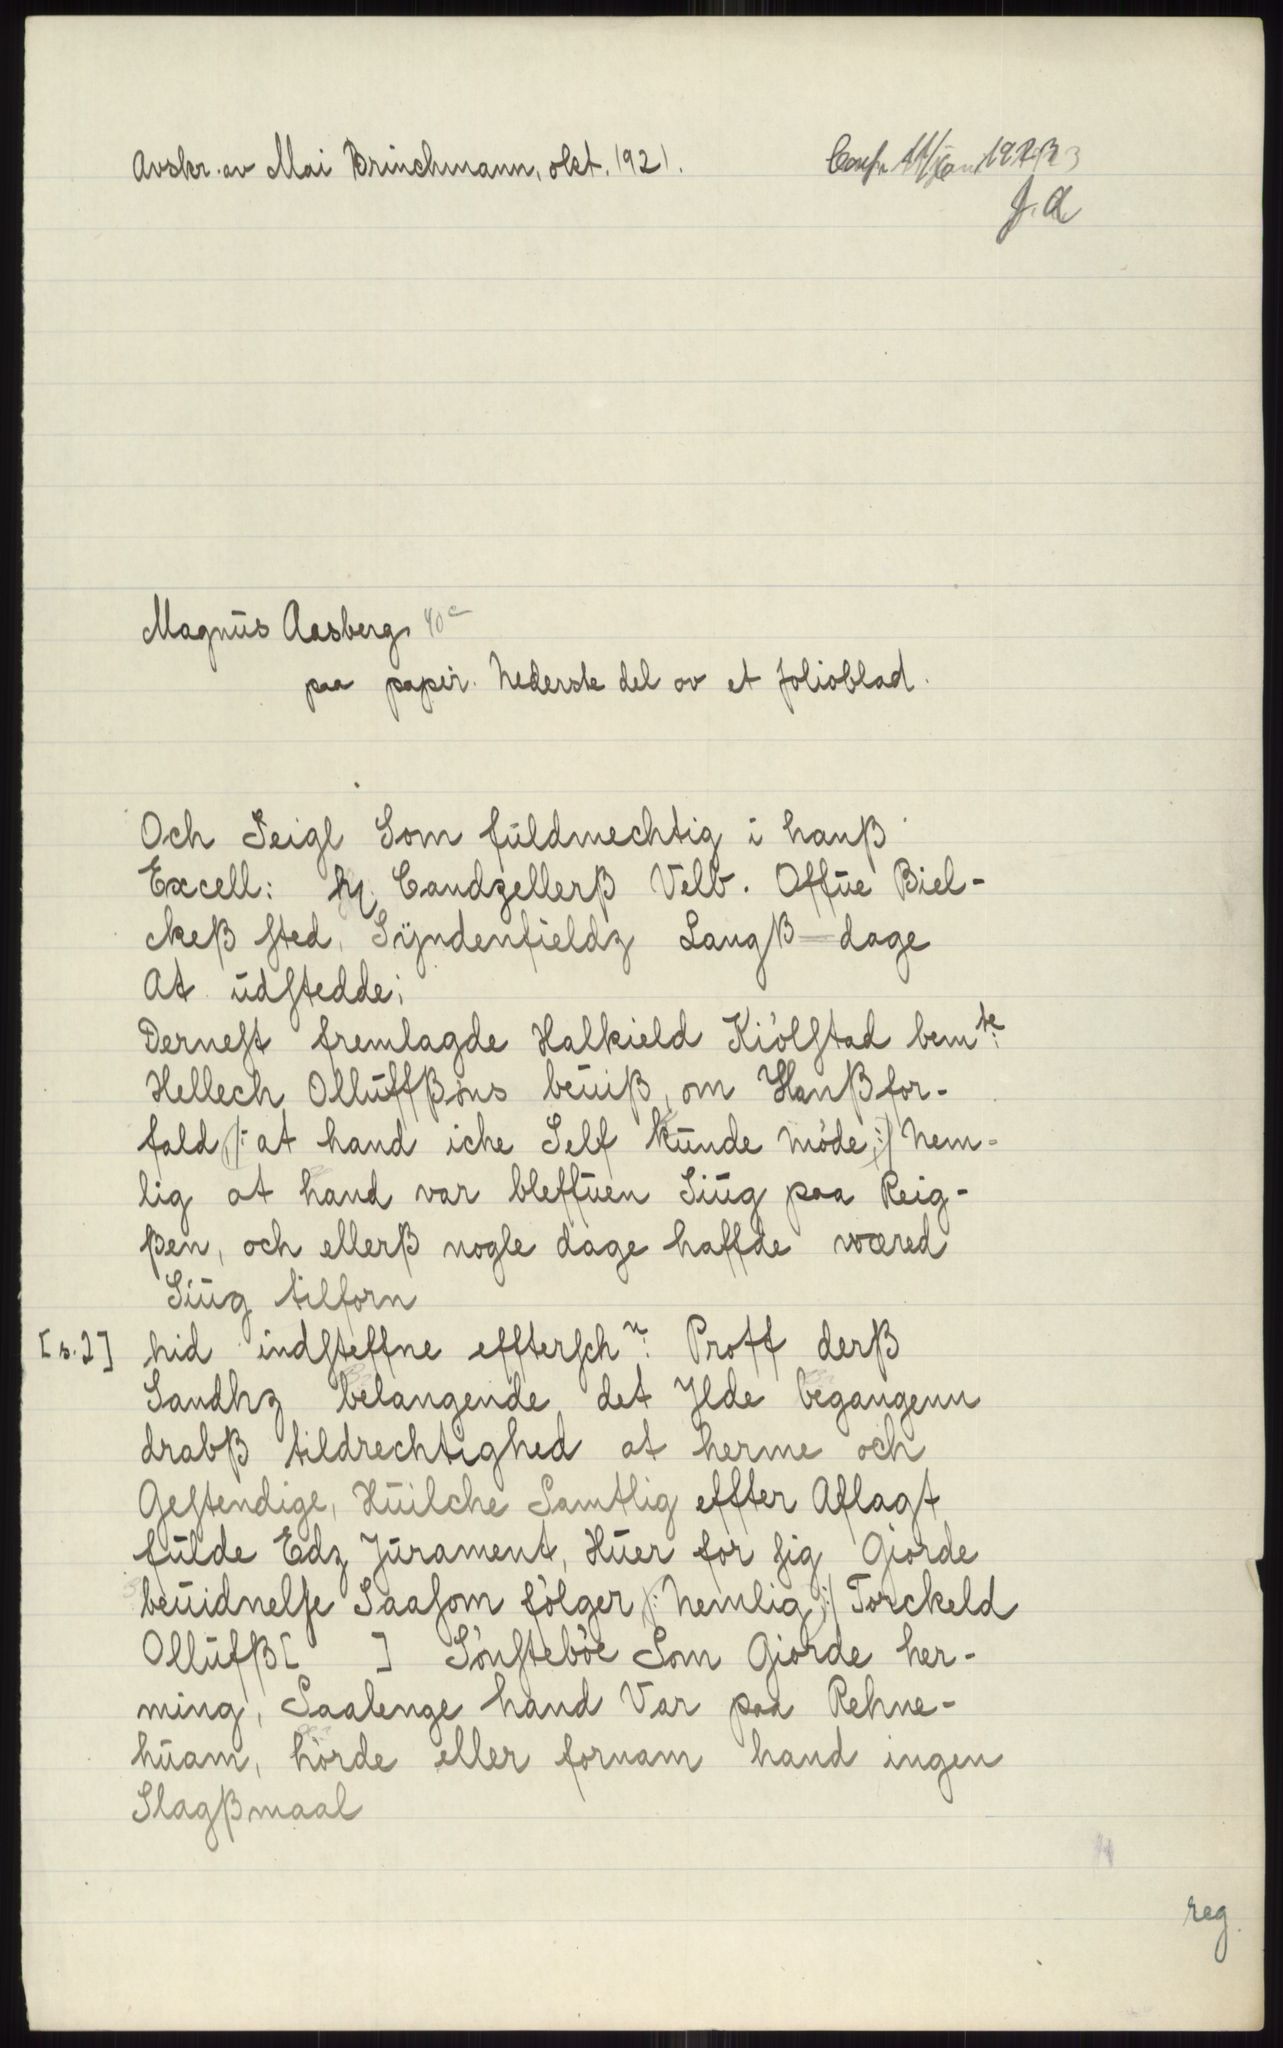 Avskr. av Mai Brinchmann, okt. 1921.
Conf. 11/jan 1923
J. A
Magnus Aasberg 40c
paa papir. Nederste del av et folioblad.
Och Seigl Som fuldmechtig i hanß
Excell: H. Candzellerß Velb. Offue Biel-
ckeß sted, Sÿndenfieldz Laugß-dage
At udstedde;
Dernest fremlagde Halkield Kiölstad bem te:
Hellech Olluffßöns beuiß, om Hanß for-
fald /: at hand iche Self kunde möde :/ Nem-
lig at hand var bleffuen Siug paa Reig-
ßen, och ellerß nogle dage haffde wæred
Siug tilforn
[s. 2] hid indsteffne efftersch n: Proff derß
Sandhz belangende det Ilde begangenn
drabß tildrechtighed at herme och
Gestendige, Huilche Samtlig effter Aflagt
fulde Edz Jurament, Huer for sig Giorde
beuidnelse Saasom fölger /: Nemlig :/ Torckeld
Ollufß[ ] Sönsteböe Som Giorde her-
ming, Saalenge hand Var paa Rehne-
huam, hörde eller fornam hand ingen
Slagßmaal
reg.